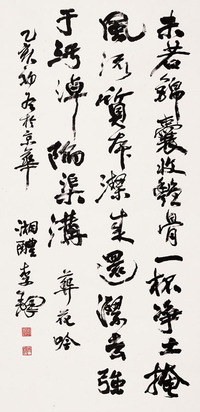 未若錦囊收艷骨一抔淨土掩
風流質本潔来還潔去強
于污淖陷渠溝 葬花吟
乙亥初冬於京華 湘醴李鐸